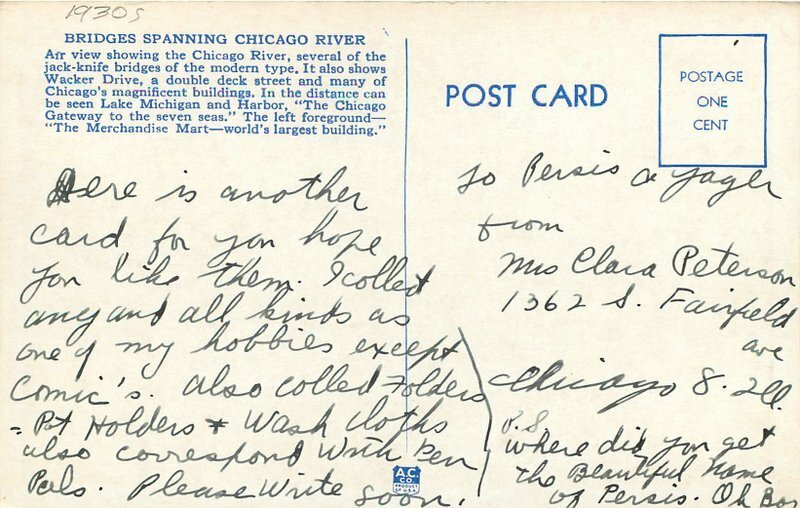 1930s
BRIDGES SPANNING CHICAGO RIVER
Air view showing the Chicago River, several of the
jack-knife bridges of the modern type. It also shows
Wacker Drive, a double deck street and many of
Chicago's magnificent buildings. In the distance can
be seen Lake Michigan and Harbor, "The Chicago
Gateway to the seven seas." The left foreground—
"The Merchandise Mart—world's largest building."
Here is another
card for you hope
you like them. I colled
any and all kinds as
one of my hobbies except
Comic's. also colled Folders
- Pot Holders & Wash Cloths
also correspond With Pen
Pals. Please Write soon.
A.C.
CO
PRODUCT
OF U.S.A.
POST CARD
POSTAGE
ONE
CENT
To Persis a Yager
from
Mrs Clara Peterson
1362 S. Fairfield
ave
Chicago 8. Ill.
P.S.
where did you get
the Beautiful Name
of Persis. Oh Boy